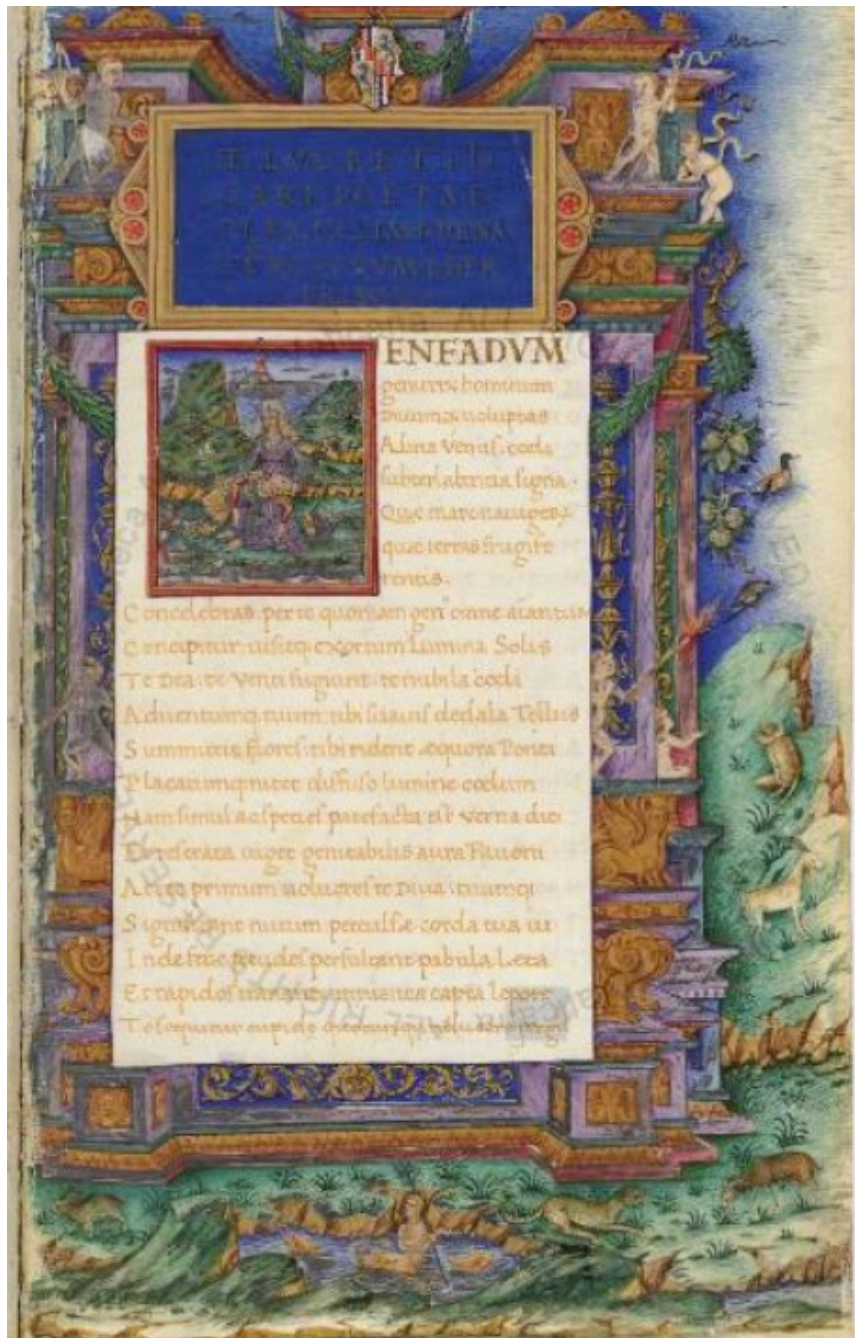 T. LVCRETII
CARI POETAE
LIBER
PRIMVS
ENEADVM
genitrix hominum
diuumq; uoluptas
Alma Venus: coeli
subter labentia signa.
Que mare nauigerum
que terras frugife
rentis.
Concelebras. per te quoniam gen' omne aiantum
Concipitur uisitq; exortum Lumina Solis
Te Dea. te Venti fugiunt. te nubila coeli
Aduentumq; tuum: tibi suauis dedala Tellus
Summittit flores: tibi rident equora Ponti
Placatumq; nitet diffuso lumine coelum
Nam simul ac species patefacta est Verna diei
Et reserata uiget genitabilis aura Fauoni
primum uolucres te Diua: tuumq;
Significant nitum perculse corda tua ui
Inde fere pecudes persultant pabula Leta
Et rapidos tranant amnis: ita capta lepore
Te sequitur cupide